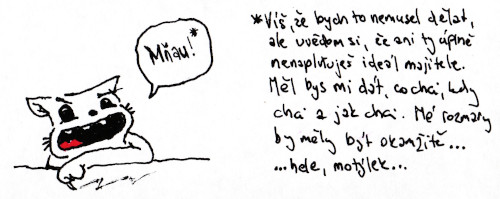 Mňau!*
*Víš, že bych to nemusel dělat,
ale uvědom si, že ani ty úplně
nenaplňuješ ideál majitele.
Měl bys mi dát, co chci, kdy
chci a jak chci. Mé rozmary
by měly být okamžitě...
...hele, motýlek...